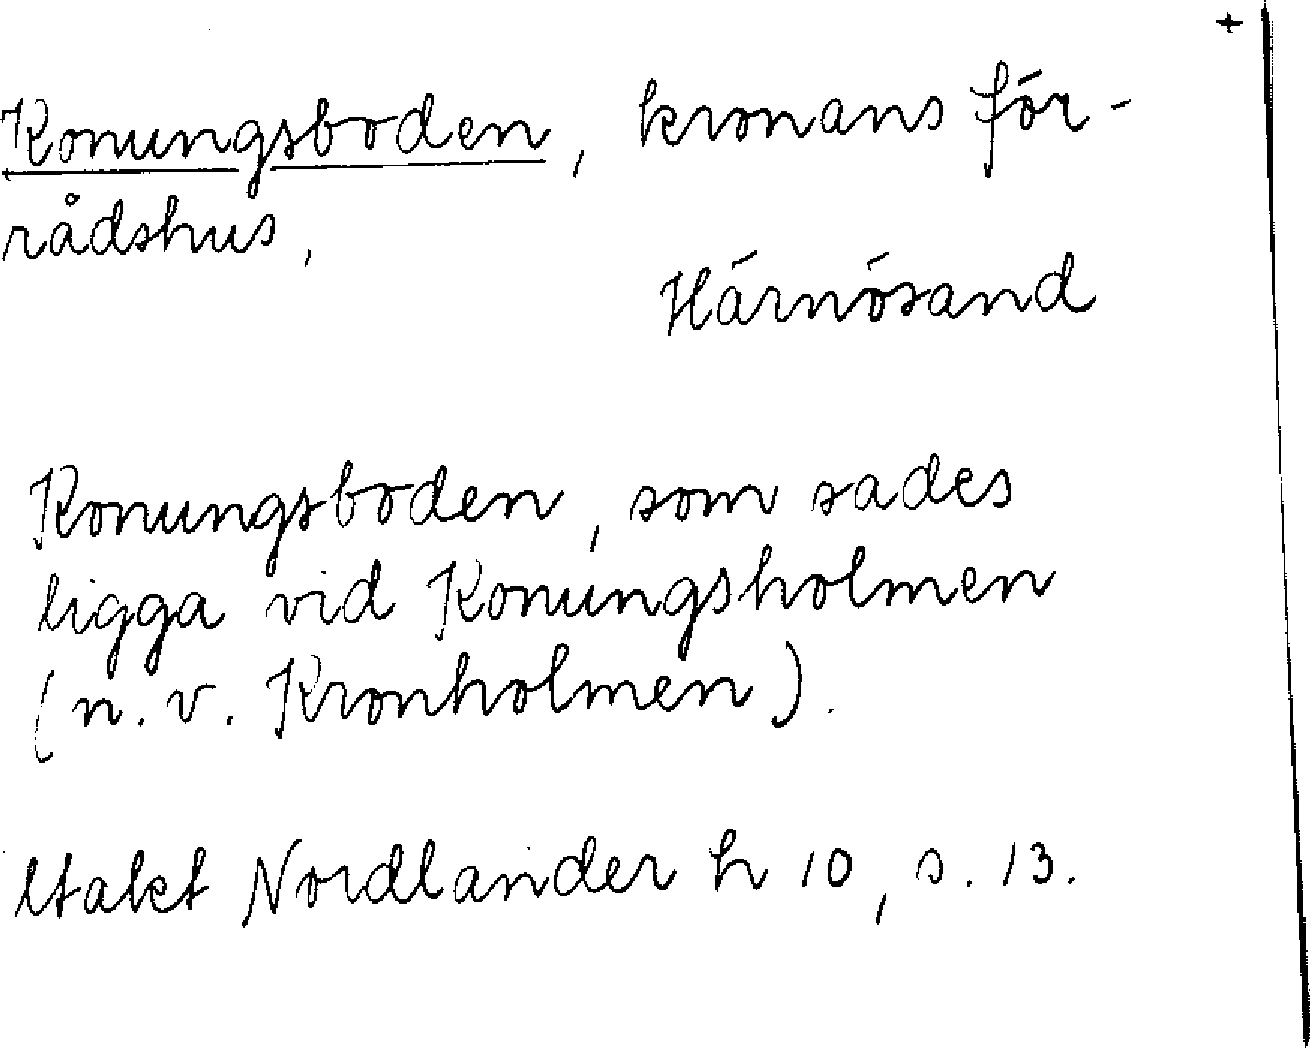 +
Konungsboden, kronans för-
rådshus,
Härnösand
Konungsboden, som sades
ligga vid Konungsholmen
(n. v. Kronholmen).
Utakt Nordlander h 10, s. 13.